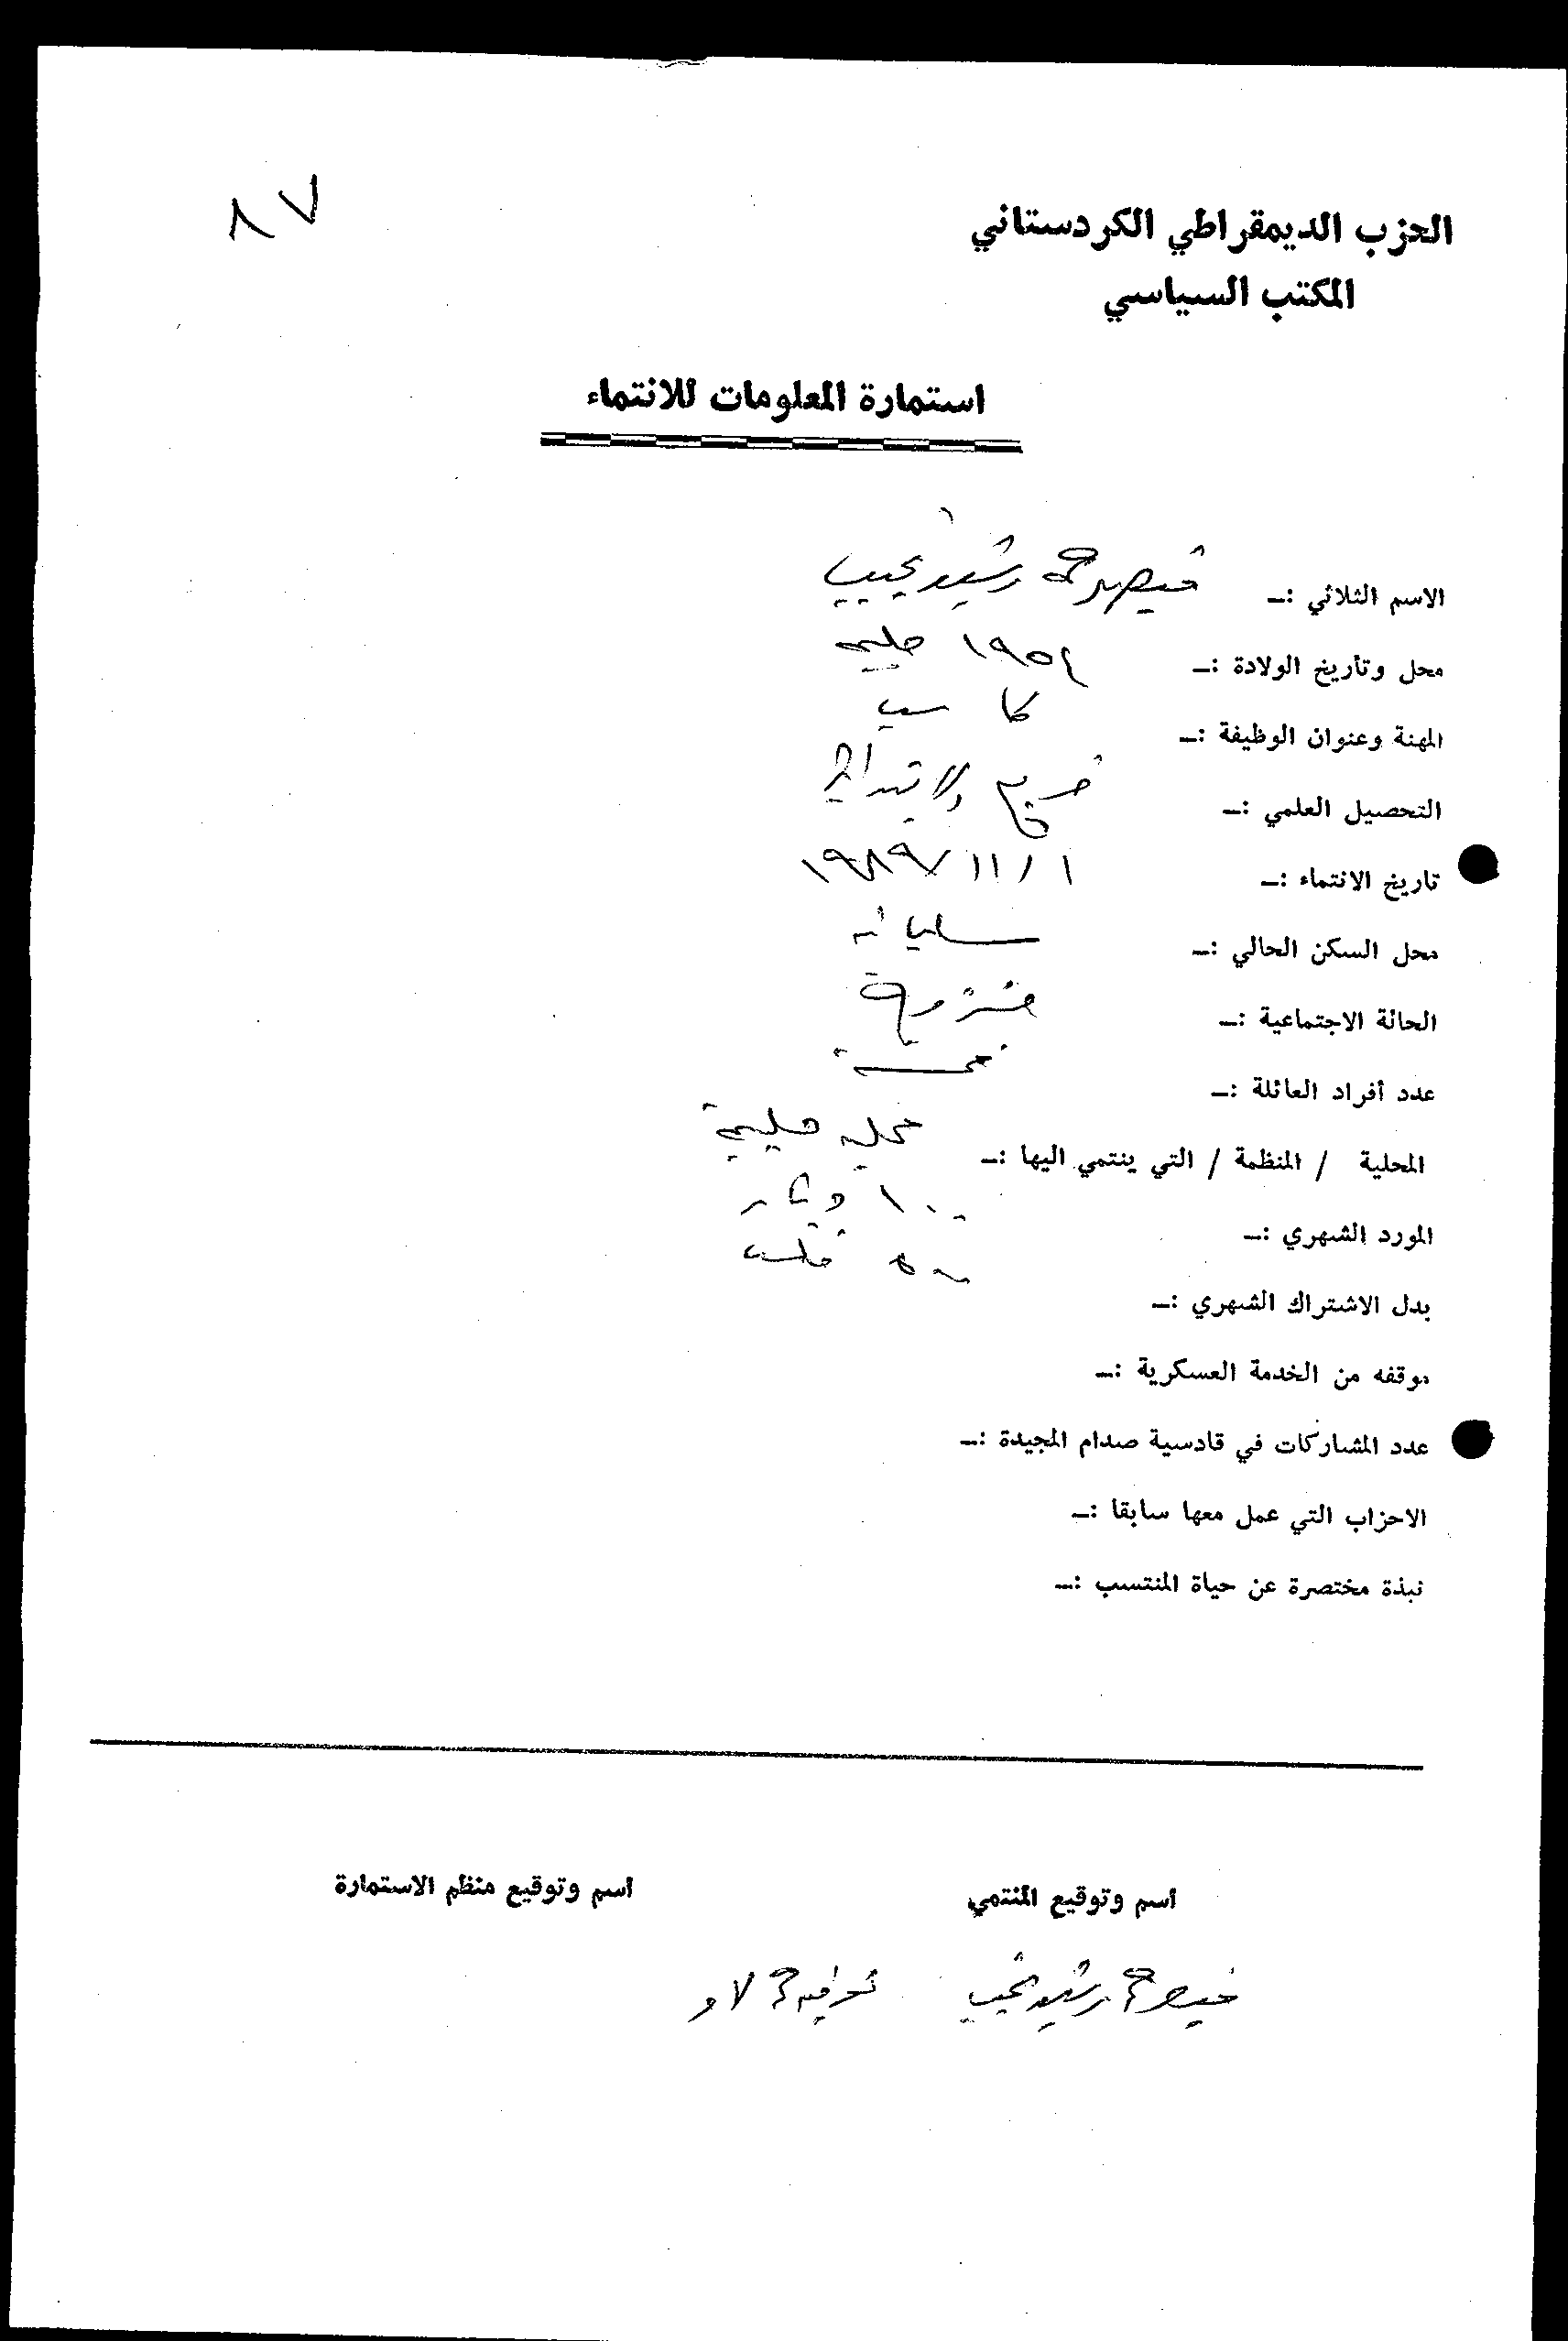 ٨٧
الحزب الديمقراطي الكردستاني
المكتب السياسي
استمارة المعلومات للانتماء
الاسم الثلاثي :ــ قيصر رشيد نجيب
محل وتأريخ الولادة :ــ ١٩٥٤
المهنة وعنوان الوظيفة :ــ كاسب
التحصيل العلمي :ــ خريج الابتدائية
تاريخ الانتماء :ــ ١ / ١١ / ١٩٨٩
محل السكن الحالي :ــ سليمانية
الحالة الاجتماعية :ــ متزوج
عدد أفراد العائلة :ــ خمسة
المحلية / المنظمة / التي ينتمي اليها :ــ محلية
المورد الشهري :ــ ١٠٠ دينار
بدل الاشتراك الشهري :ــ ٥٠٠ فلس
موقفه من الخدمة العسكرية :ــ
عدد المشاركات في قادسية صدام المجيدة :ــ
الاحزاب التي عمل معها سابقا :ــ
نبذة مختصرة عن حياة المنتسب :ــ
اسم وتوقيع المنتمي
اسم وتوقيع منظم الاستمارة
قيصر رشيد نجيب